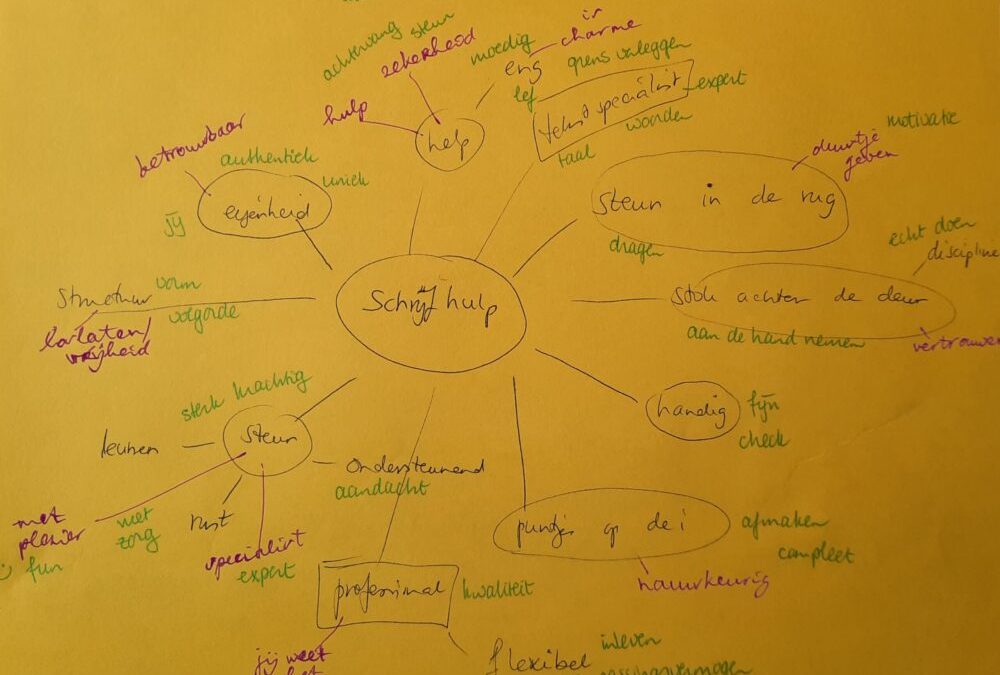 achtervang steun
zekerheid
hulp
help
moedig
eng
charme
lef
grens verleggen
tekst specialist
expert
woorden
taal
betrouwbaar
authentiek
uniek
eigenheid
jij
steun in de rug
duwtje
geven
motivatie
dragen
Schrijfhulp
stok achter de deur
echt doen
discipline
aan de hand nemen
structuur
vorm
volgorde
loslaten/
vrijheid
handig
fijn
check
sterk krachtig
steun
leunen
ondersteunend
aandacht
rust
met
plezier
met
zorg
fun
specialist
expert
puntjes op de i
afmaken
compleet
nauwkeurig
professional
kwaliteit
jij weet
het
flexibel
inleven